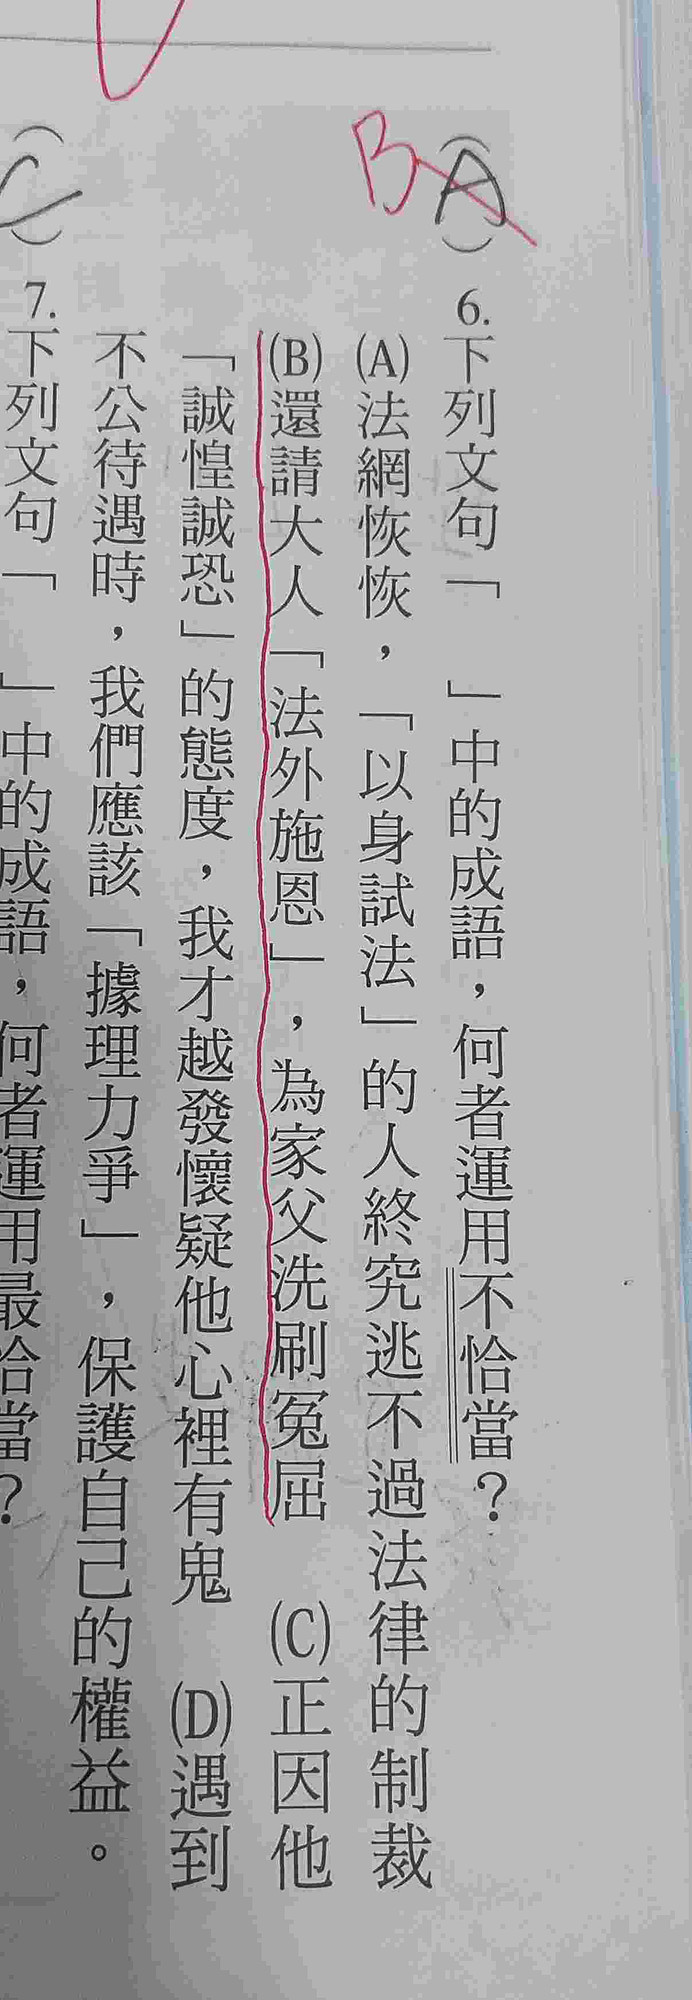 B A
( )6.下列文句「　」中的成語，何者運用不恰當？
(A)法網恢恢，「以身試法」的人終究逃不過法律的制裁
(B)還請大人「法外施恩」，為家父洗刷冤屈　(C)正因他
「誠惶誠恐」的態度，我才越發懷疑他心裡有鬼　(D)遇到
不公待遇時，我們應該「據理力爭」，保護自己的權益。
(C)7.下列文句「　」中的成語，何者運用最恰當？